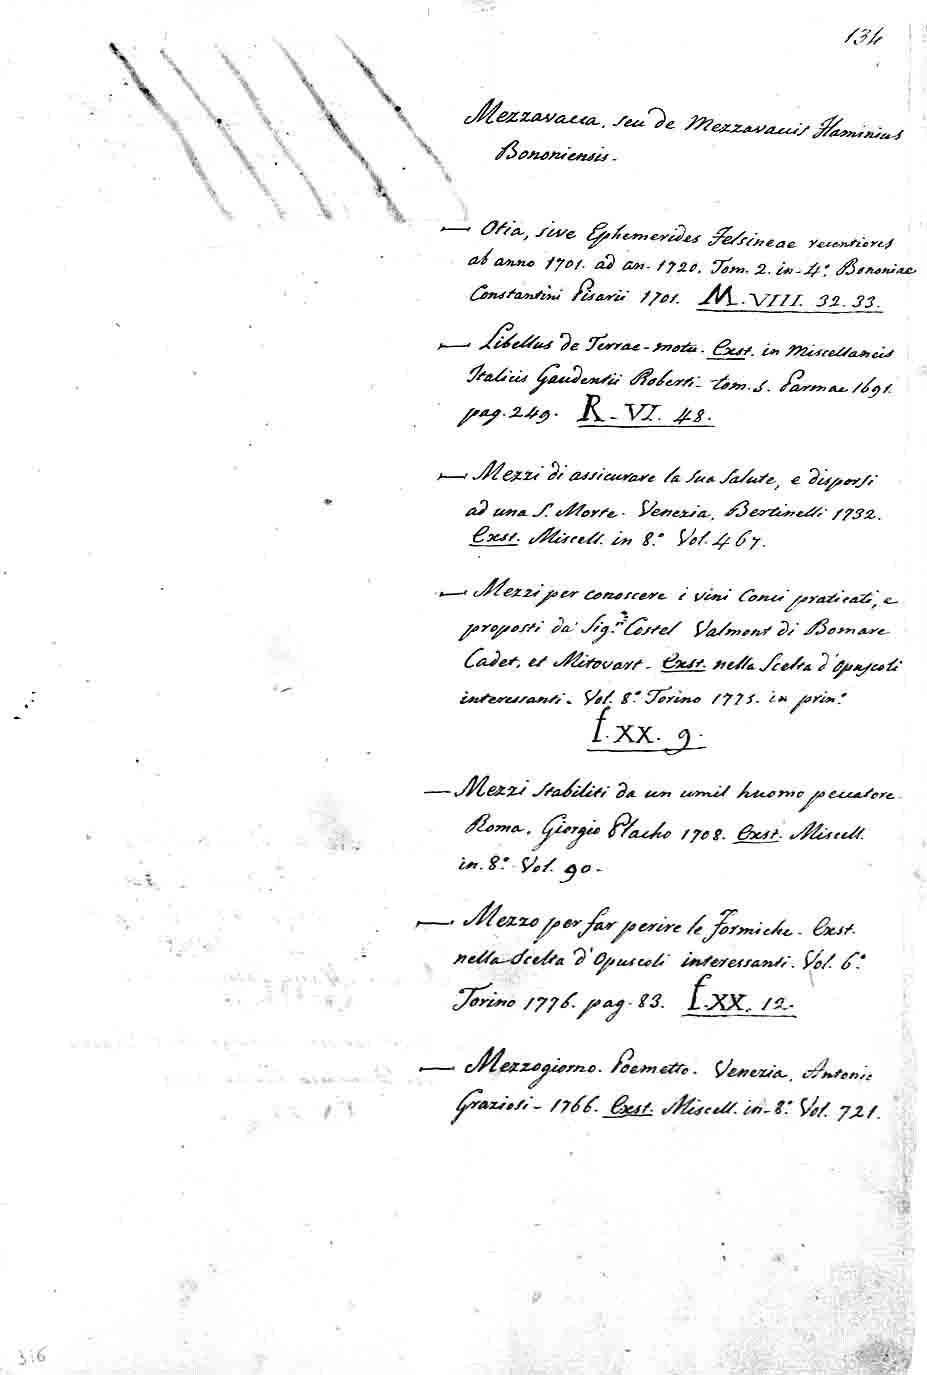 134
Mezzavacca, seu de Mezzavaccis Flaminius
Bononiensis.
— Otia, sive Ephemerides Felsineae recentiores
ab anno 1701. ad an. 1720. Tom. 2. in-4.º Bononiae
Constantini Pisarii 1701. M. VIII. 32. 33.
— Libellus de Terrae-motu. Exst. in Miscellaneis
Italicis Gaudentii Roberti. tom. 5. Parmae 1691.
pag. 249. R. VI. 48.
— Mezzi di assicurare la sua salute, e disporsi
ad una S. Morte. Venezia, Bertinelli 1732.
Exst. Miscell. in 8.º Vol. 467.
— Mezzi per conoscere i vini Conci praticati, e
proposti da' Sig.ri Costel Valmont di Bomare
Cadet, et Mitovart. Exst. nella Scelta d'Opuscoli
interessanti. Vol. 8.º Torino 1775. in prin.º
f. XX. 9.
— Mezzi stabiliti da un umil huomo peccatore.
Roma, Giorgio Placho 1708. Exst. Miscell.
in 8.º Vol. 90.
— Mezzo per far perire le formiche. Exst.
nella Scelta d'Opuscoli interessanti. Vol. 6.º
Torino 1776. pag. 83. f. XX. 12.
— Mezzogiorno. Poemetto. Venezia, Antonio
Graziosi. 1766. Exst. Miscell. in-8.º Vol. 721.
316